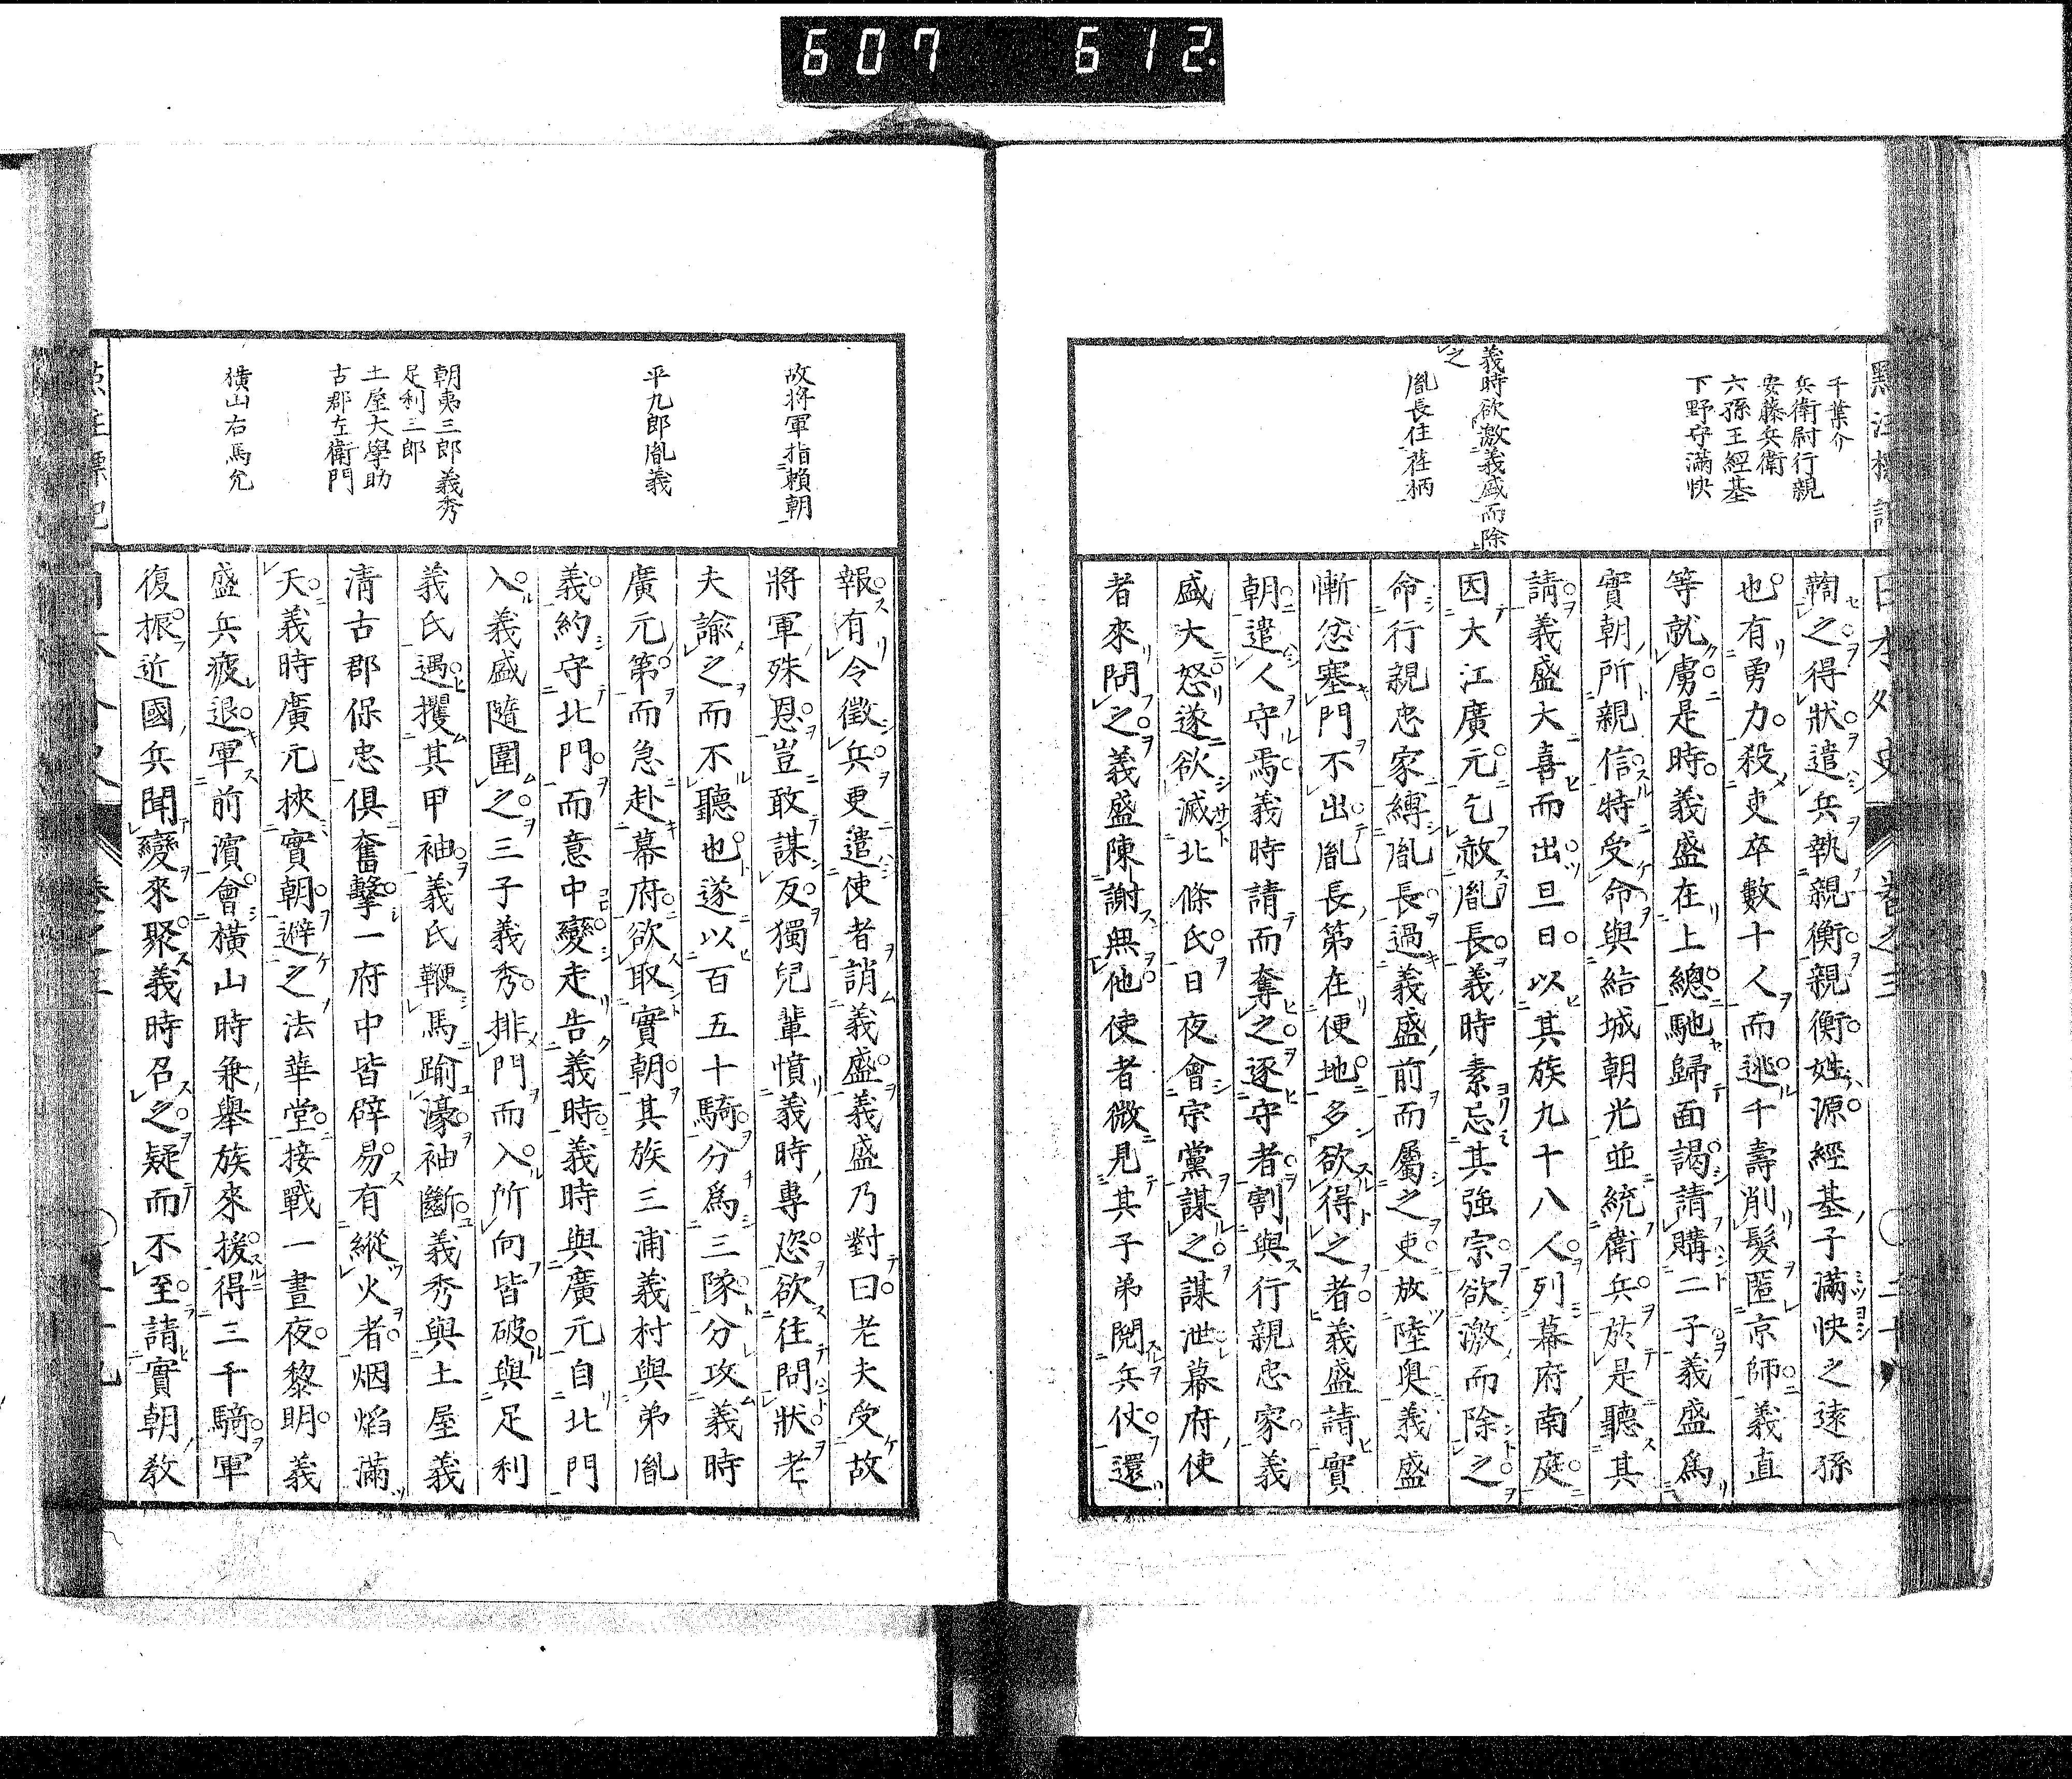 607 612
千葉介
兵衛尉行親
安藤兵衛
六孫王經基
下野守滿快
義時欲激義盛而除
之
胤長住荏柄
鞫之得狀遣兵執親衡親衡姓源經基子滿快之遠孫
也有勇力殺吏卒數十人而逃千壽削髮匿京師義直
等就虜是時義盛在上總馳歸面謁請購二子義盛爲
實朝所親信特受命與結城朝光並統衛兵於是聽其
請義盛大喜而出旦日以其族九十八人列幕府南庭
因大江廣元乞赦胤長義時素忌其強宗欲激而除之
命行親忠家縛胤長過義盛前而屬之吏放陸奧義盛
慚忿塞門不出胤長第在便地多欲得之者義盛請實
朝遣人守焉義時請而奪之逐守者割與行親忠家義
盛大怒遂欲滅北條氏日夜會宗黨謀之謀泄幕府使
者來問之義盛陳謝無他使者微見其子弟閱兵仗還
故將軍指賴朝
平九郎胤義
朝夷三郎義秀
足利三郎
土屋大學助
古郡左衛門
橫山右馬允
報有令徵兵更遣使者誚義盛義盛乃對曰老夫受故
將軍殊恩豈敢謀反獨兒輩憤義時專恣欲往問狀老
夫諭之而不聽也遂以百五十騎分爲三隊分攻義時
廣元第而急赴幕府欲取實朝其族三浦義村與弟胤
義約守北門而意中變走告義時義時與廣元自北門
入義盛隨圍之三子義秀排門而入所向皆破與足利
義氏遇攫其甲袖義氏鞭馬踰濠袖斷義秀與土屋義
清古郡保忠俱奮擊一府中皆辟易有縱火者烟焰滿
天義時廣元挾實朝避之法華堂接戰一晝夜黎明義
盛兵疲退軍前濱會橫山時兼舉族來援得三千騎軍
復振近國兵聞變來聚義時召之疑而不至請實朝教